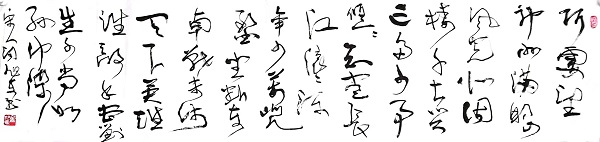 何處望
神州滿眼
風光北固
樓千古興
亡多少事
悠悠不盡長
江滾滾流
年少萬兜
鍪坐斷東
南戰未休
天下英雄
誰敵手曹劉
生子當如
孫仲謀